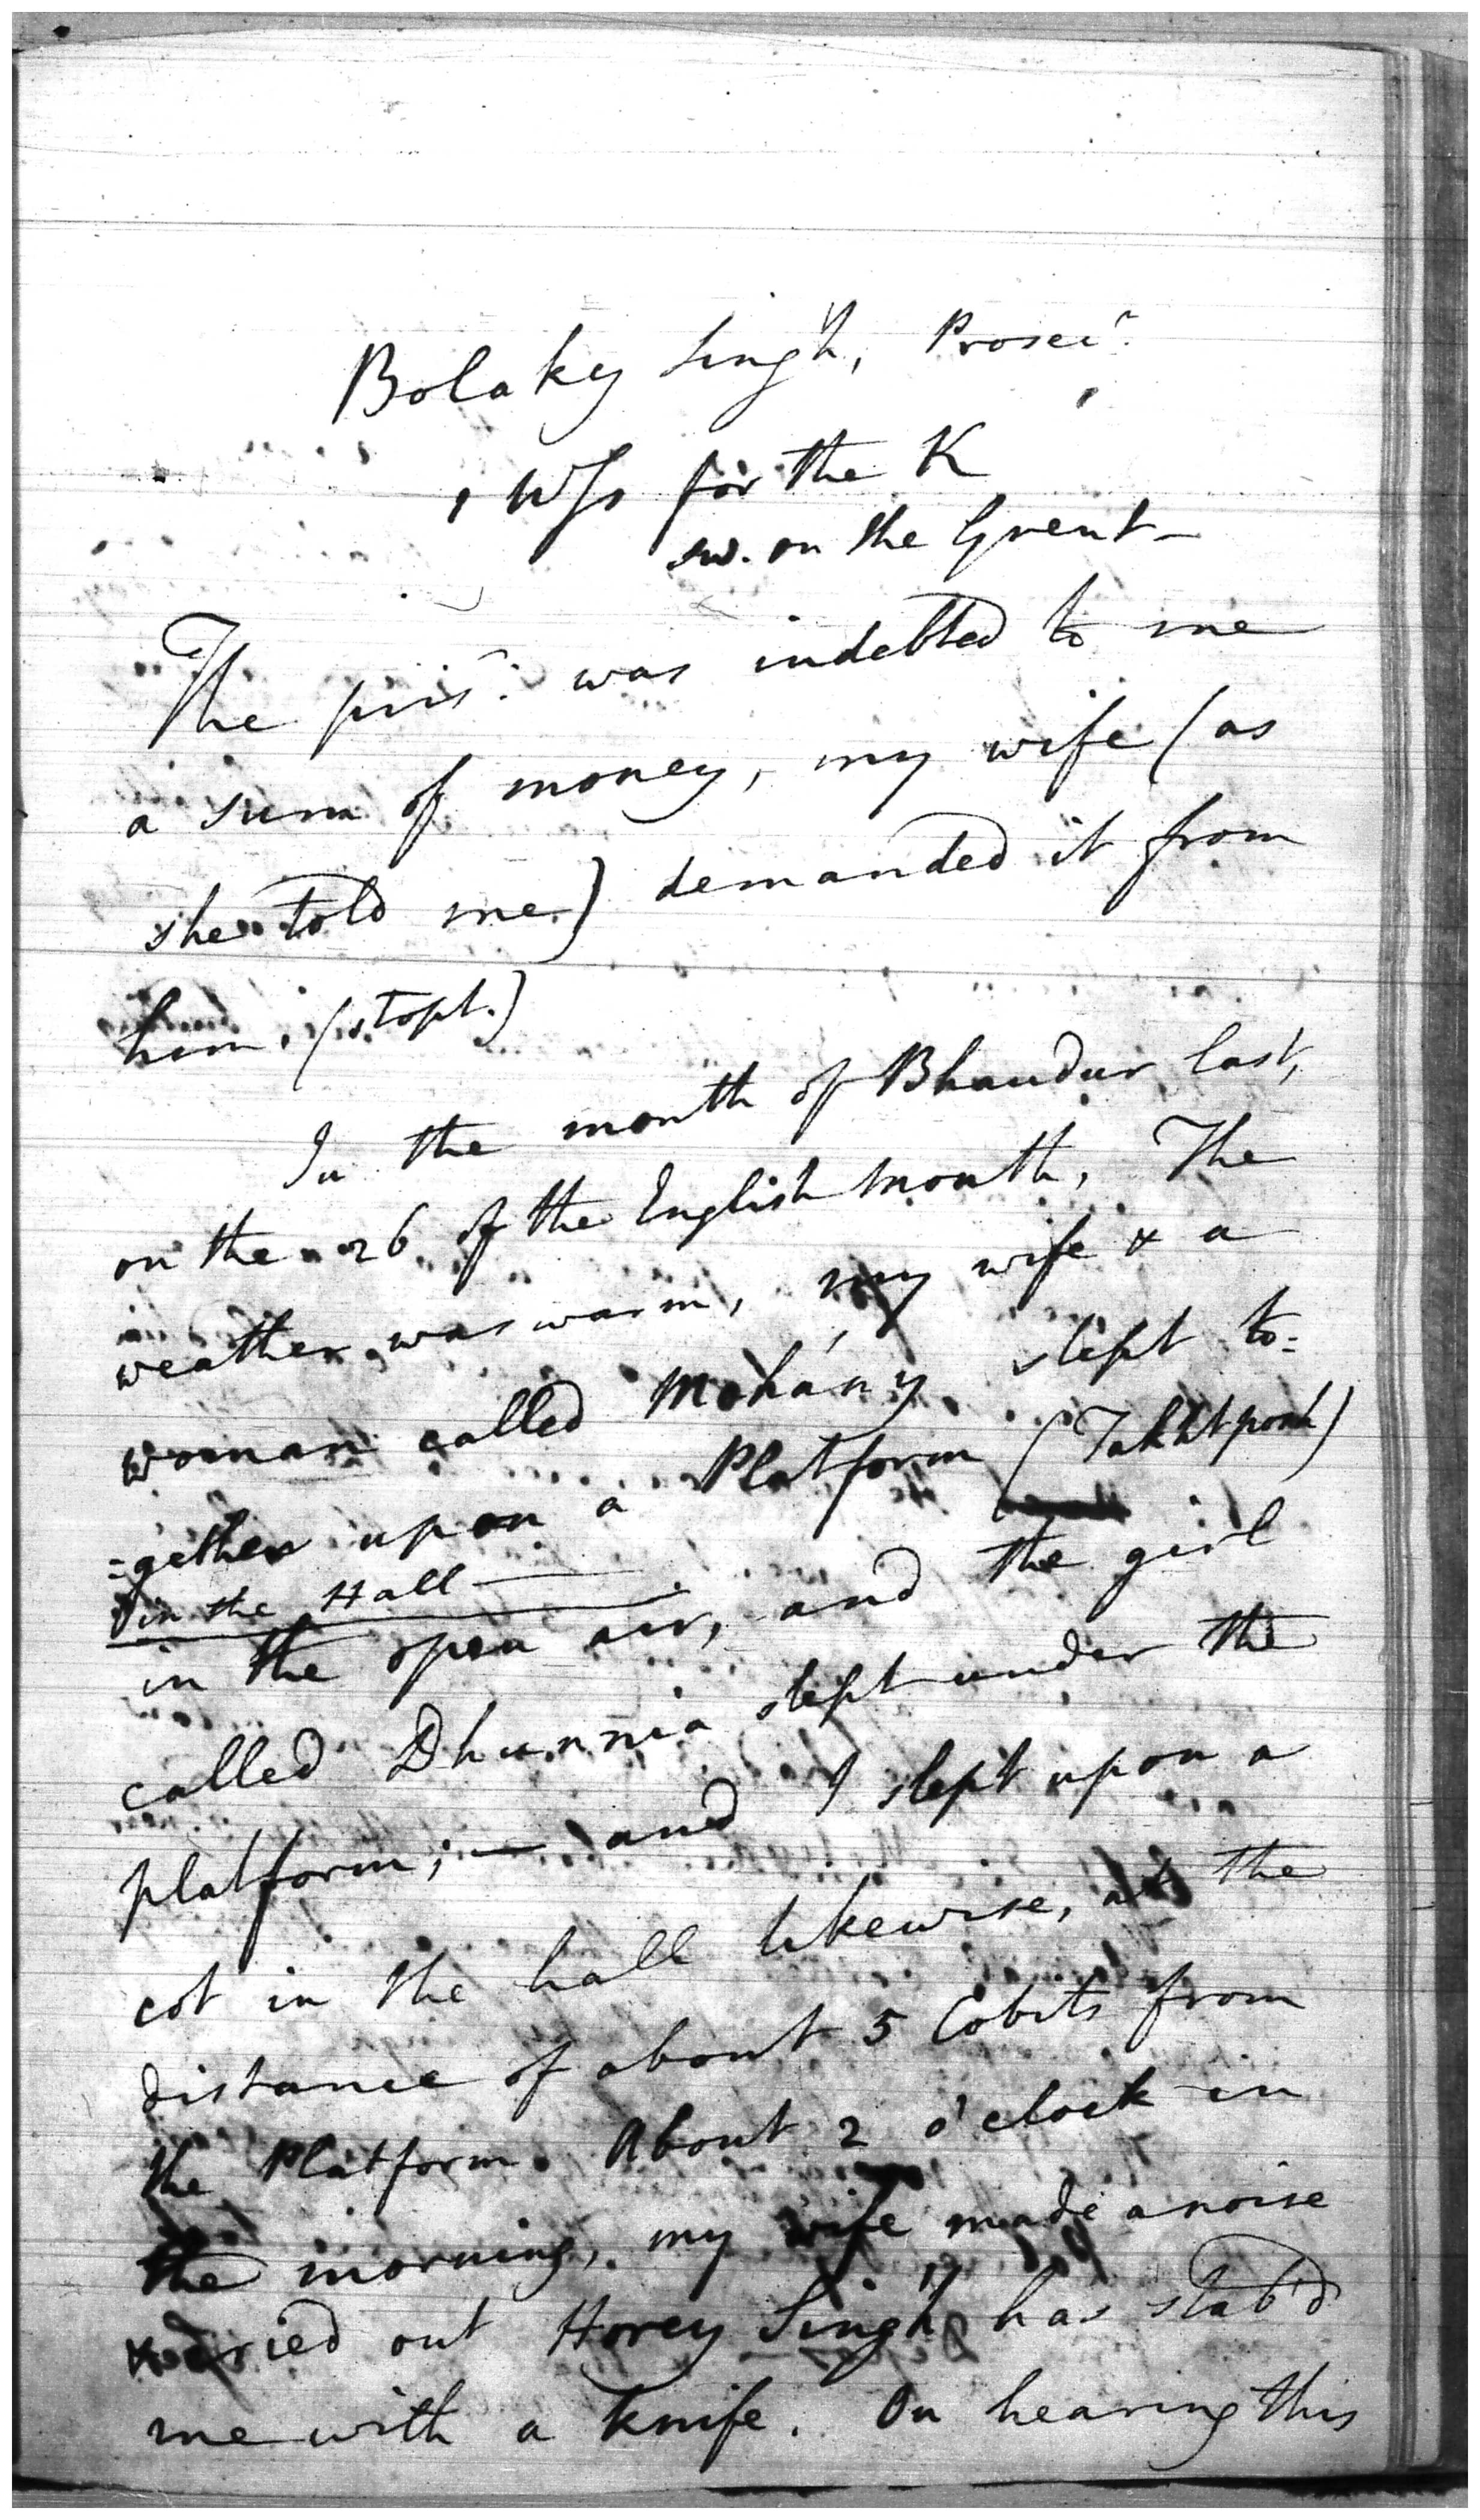 Bolakey Singh, Prosecr.
1 Wss for the K
sw. on the Grent -
The prisr: was indebted to me
a sum of money, my wife (as
she told me) demanded it from
him. (stopt.)
In the month of Bhaudur last,
on the 26 of the English month. The
weather was warm, my wife & a
woman called Mohány slept to=
=gether upon a Platform (Takhtposh)
in the Hall —
in the open air, and the girl
called Dhunnia slept under the
platform; — and I slept upon a
cot in the hall likewise, at the
distance of about 5 Cobits from
the Platform. About 2 o'clock in
the morning, my wife made a noise
& cried out Horey Singh has stab'd
me with a knife. On hearing this